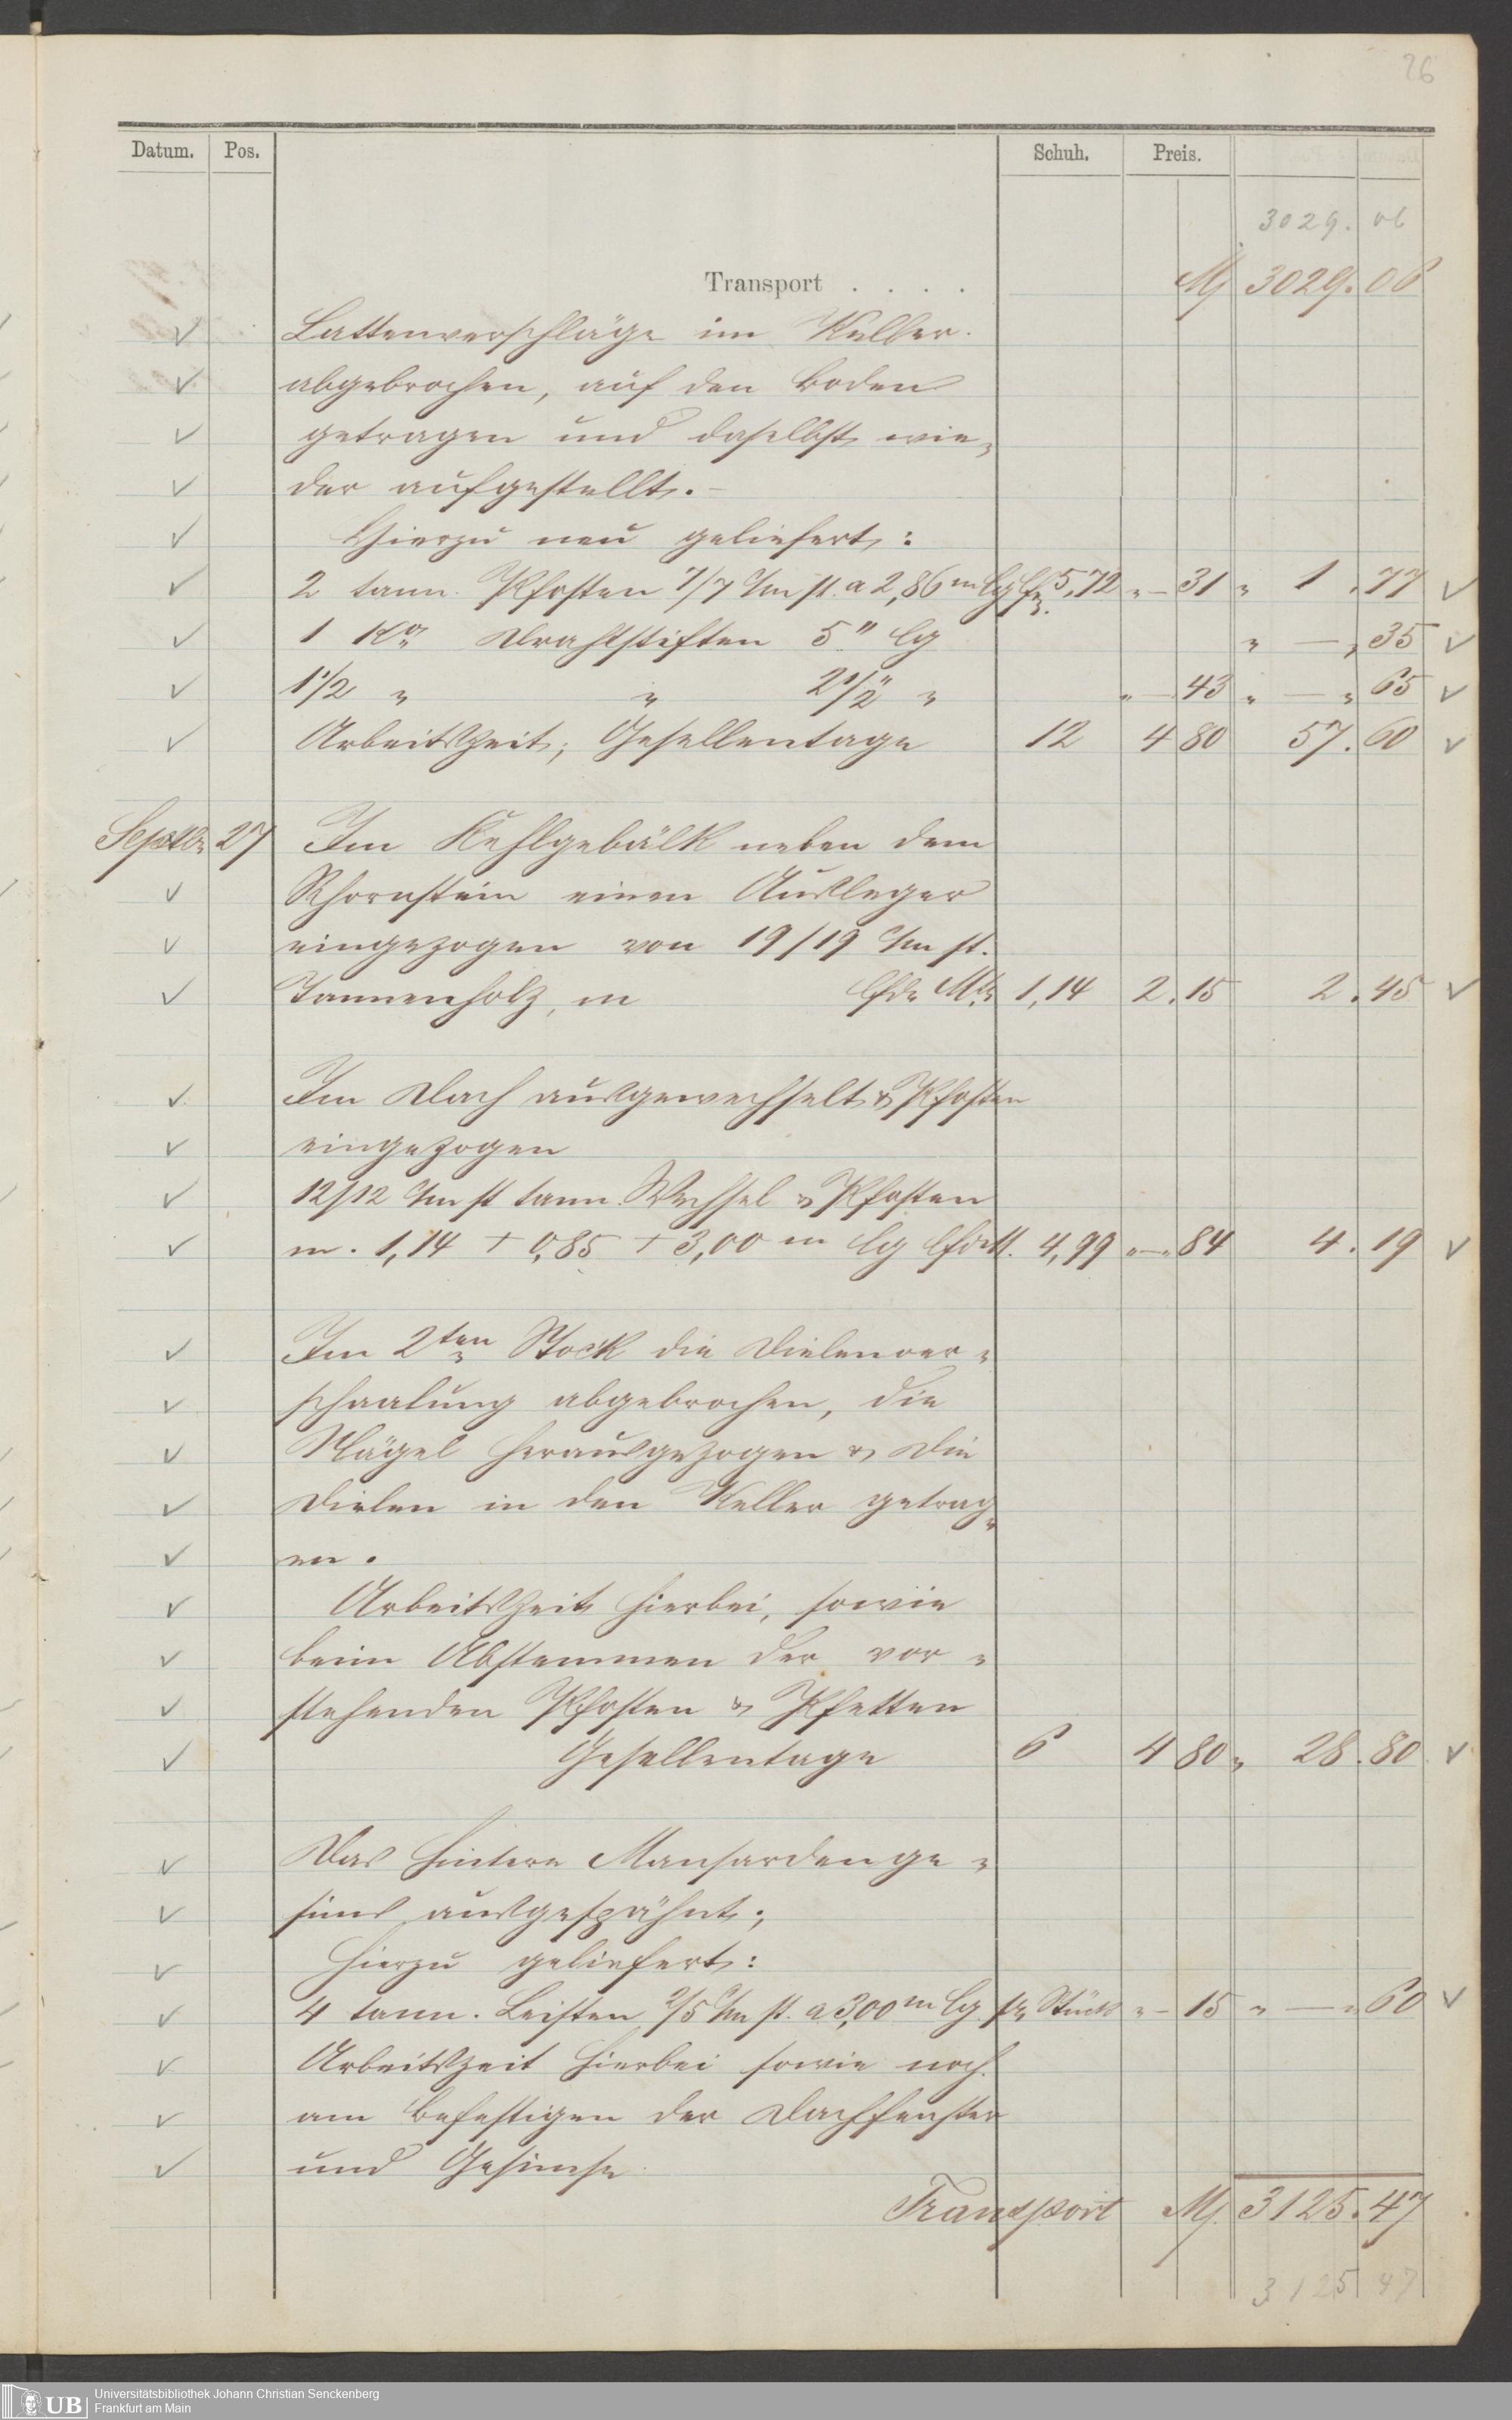 26
Datum. Pos. Schuh. Preis.
3029. 06
Transport . . . . M 3029. 06
Lattenverschläge im Keller
abgebrochen, auf den Boden
getragen und daselbst wie-
der aufgestellt. -
Hierzu neu geliefert:
2 tann. Pfosten 7/7 c/m st. a 2,86 m lg lfm. 5,72 " — 31 " 1. 77
1 Ko Drahtstiften 5" lg " — " 35
1 1/2 " " 2 1/2" " " — 43 " — " 65
Arbeitszeit, Gesellentage 12 4 80 57. 60
Septbr 27 Im Kehlgebälk neben dem
Schornstein einen Ausleger
eingezogen von 19/19 c/m st.
Tannenholz, m lfde Mtr 1,14 2. 15 2. 45
Im Dach ausgewechselt & Pfosten
eingezogen
12/12 c/m st tann. Wechsel & Pfosten
m. 1,14 + 0,85 + 3,00 m lg lfdM. 4,99 " — " 84 4. 19
Im 2ten Stock die Dielenver-
schaalung abgebrochen, die
Nägel herausgezogen & die
Dielen in den Keller getrag-
en.
Arbeitszeit hierbei, sowie
beim Abstemmen der vor-
stehenden Pfosten & Pfetten
Gesellentage 6 4 80 " 28. 80
Das hintere Mansardenge-
sims ausgespähnt,
hierzu geliefert:
4 tann. Leisten 2/5 c/m st. a 3,00 m lg. pr Stück " — 15 " — " 60
Arbeitszeit hierbei sowie noch
am befestigen der Dachfenster
und Gesimse
Transport M 3125. 47
3125 47
UB Universitätsbibliothek Johann Christian Senckenberg
Frankfurt am Main